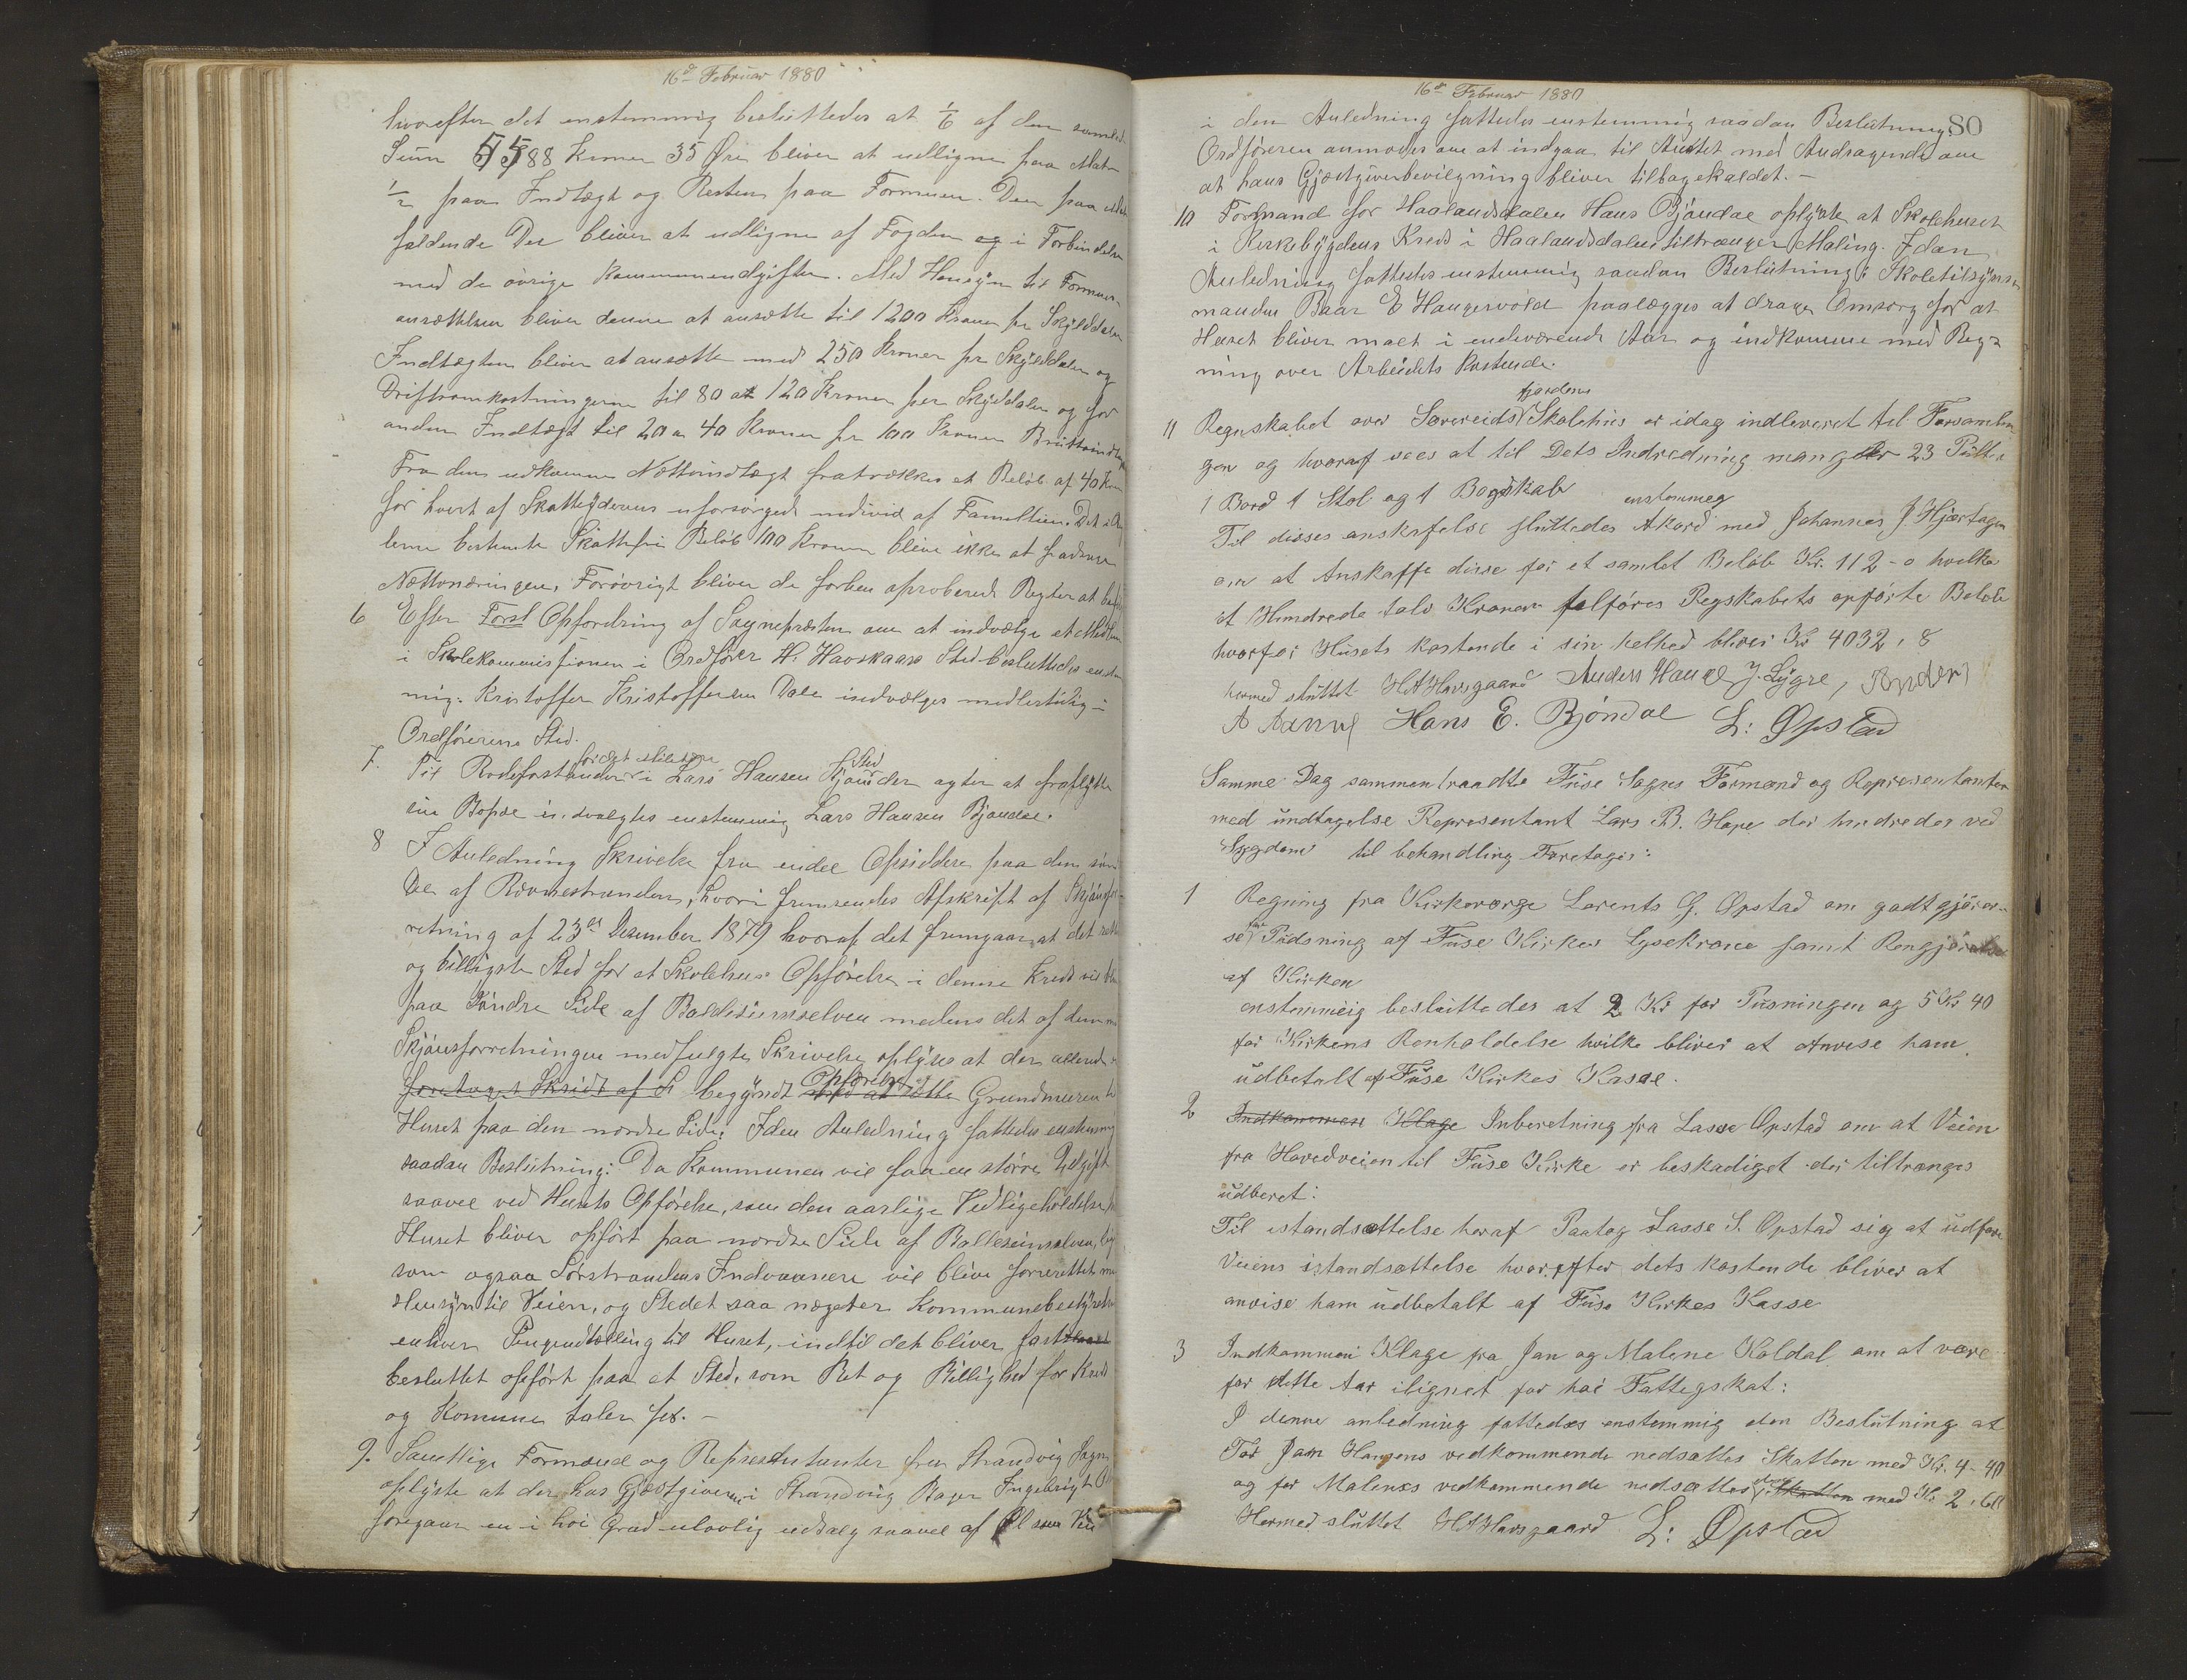 16d Februar 1880
hvorefter det enstemmig besluttedes at 1/6 af den samlede
Sum 5588 Kroner 35 Øre bliver at udligne paa Mat-
1/2 paa Indtægt og Resten paa Formuen. Den paa
faldende Del bliver at udligne af Fogden og i Forbindelse
med de øvrige Kommuneudgifter. Med Hensyn til Formues-
ansættelsen bliver denne at ansætte til 1200 Kroner pr Skylddaler
Indtægten bliver at ansætte med 250 Kroner pr Skylddaler og
Driftsomkostningerne til 80 a 120 Kroner per Skylddaler og for
anden Indtægt til 20 a 40 Kroner pr 100 Kroner Bruttoindtægt
Fra den udkomne Nættoindtægt fratrækkes et Beløb af 40 Kroner
for hvert af Skatteyderens uforsørgede individ af Familien. Det i
lerne bestemte Skattefri Beløb 100 Kroner blive ikke at fradrage
Nættonæringen. Forøvrigt bliver de forhen aproberede Regler at
6 Efter Forsl Opfordring af Sognepræsten om at indvælge et Medlem
i Skolekommissionen i Ordfører H. Havskaars Sted besluttedes enstem
mig: Kristoffer Kristoffersen Dale indvælges midlertidig i
Ordførerens Sted.
7. Til Rodeforstander i Lars Hansen Sted agter at fraflytte
sin Bopæl indvalgtes enstemmig Lars Hansen Bjøndal.
8 I Anledning Skrivelse fra endel Opsiddere paa den
Del af Strandens, hvori fremsendes Afskrift af Skjønsfor-
retning af 23de Desember 1879 hvoraf det fremgaar at det
og billigste Sted for et Skolehus Opførelse i denne Kreds vil
paa Søndre Side af Balldisiemselven medens det af den
Skjønsforretningen medfulgte Skrivelse oplyses at der allerede
foretaget Skridt af begyndt Opførelse af Grundmuren
Huset paa den nordre Side. I den Anledning fattedes enstemmig
saadan Beslutning: Da Kommunen vil faa en større Udgift
saavel ved Husets Opførelse, som den aarlige Vedligeholdelse,
Huset bliver opført paa nordre Side af Balleseimselven, lige
som ogsaa Sørstrandens Indvaanere vil blive forurettet
Hensyn til Veien, og Stedet saa nægter Kommunebestyrelsen
enhver Pengeudtælling til Huset, indtil det bliver
besluttet opført paa et Sted, som Ret og Billighed for Kreds
og Komune taler for. -
9. Samtlige Formænd og Representanter fra Strandvig Sogn
oplyste at der hos Gjæstgiveren i Strandvig Roger Ingebrigt
foregaar en i høi Grad ulovlig udsalg saavel af Øl som Vin
16de Februar 1880
80
i den Anledning fattedes enstemmig saadan Beslutning
Ordføreren anmodes om at indgaa til Amtet med Andragende om
at hans Gjæstgiverbevilgning bliver tilbagekaldet. -
10 Formand for Haalandsdalen Hans Bjøndal oplyste at Skolehuset
i Kirkebygdens Kreds i Haalandsdalen tiltrænger Maling. I den
Anledning fattedes enstemmig saadan Beslutning: Skoletilsyns-
manden Baar E Haugervold paalægges at drage Omsorg for at
Huset bliver malt i indeværende Aar og indkomme med Reg-
ning over Arbeidets Kostende.
fjordens
11 Regnskabet over Sævereids Skolehus er idag indleveret til Forsamlin
gen og hvoraf sees at til Dets Indredning mangler 23 Pulte
1 Bord 1 Stol og 1 Bogskab enstemmeg
Til disses anskafelse sluttedes Akord med Johannes J Hjærtager
om at Anskaffe disse for et samlet Beløb Kr. 112-0 hvilke
et Hundrede tolv Kroner tilføres Regskabets opførte Beløb
hvorfor Husets kostende i sin helhed bliver Kr 4032,8
hermed sluttet HAHavsgaard Anders Hauge J. Lygre,
Hans E. Bjøndal L: Øpstad
Samme Dag sammentraadte Fuse Sogns Formænd og Representanter
med undtagelse Representant Lars B. Hope der hindredes ved
Sygdom til behandling Foretages:
1 Regning fra Kirkeværge Lorents G. Opstad om godtgjørel-
se for Pudsning af Fuse Kirkes Lysekrone samt Rengjørelse
af Kirken
enstemmeig besluttedes at 2 Kr for Pusningen og 5 Kr 40
for Kirkens Renholdelse hvilke bliver at Anvese ham
udbetalt af Fuse Kirkes Kasse.
2 Indkommen Klage Inberetning fra Lasse Opstad om at Veien
fra Hovedveien til Fuse Kirke er beskadiget der tiltrænges
udberet:
Til istandsættelse heraf Paatog Lasse S. Opstad sig at udføre
Veiens istandsættelse hvorefter dets kostende bliver at
anvise ham udbetalt af Fuse Kirkes Kasse
3 Indkommen Klage fra Jan og Malene Koldal om at være
for dette Aar ilignet for høi Fattegskat:
I denne anledning fattedes enstemmig den Beslutning at
For Jan Hansens vedkommende nedsættes Skatten med Kr. 4-40
og for Malenes vedkommende nedsættes den Skatten med Kr 2,60
Hermed sluttet HAHavsgaard L: Øpstad